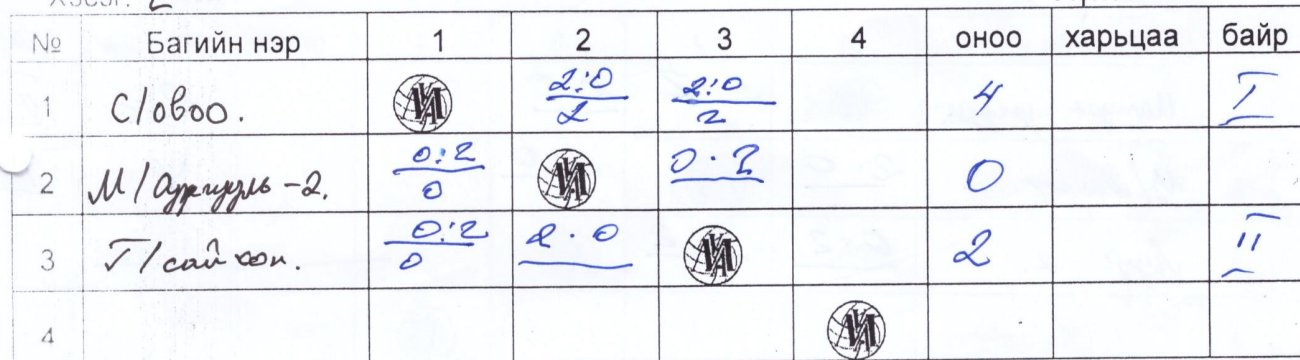 Хэсэг: 2
№ Багийн нэр 1 2 3 4 оноо харьцаа байр
1 С/овоо. 2:0/2 2:0/2 4 I
2 М/сургууль-2. 0:2/0 0:2 0
3 Г/сайхан. 0:2/0 2:0 2 II
4